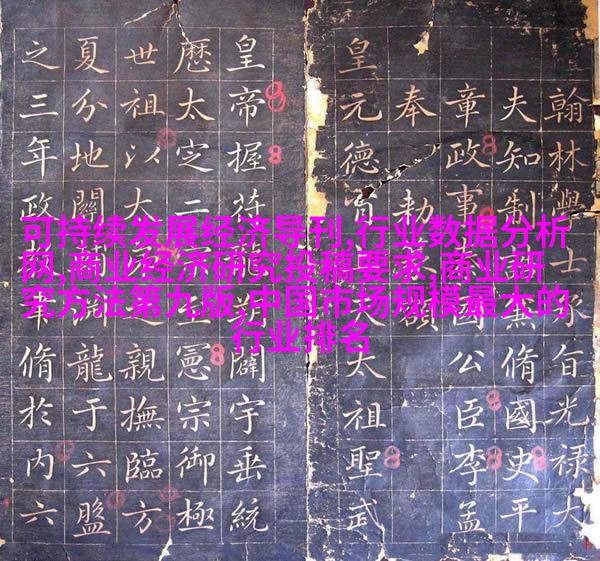 可持续发展经济导刊,行业数据分析
网,商业经济研究投稿要求,商业研
究方法第九版,中国市场规模最大的
行业排名
翰林學士承旨光祿大
夫知制兼脩國史平
章政事國公臣李孟
奉勅
皇元德太祖聖武
皇帝握符朔闢宇垂統
厯太定二憲宗御極
世祖以太親撫臨方
夏分地關龍于六盤
之三年政脩於內六